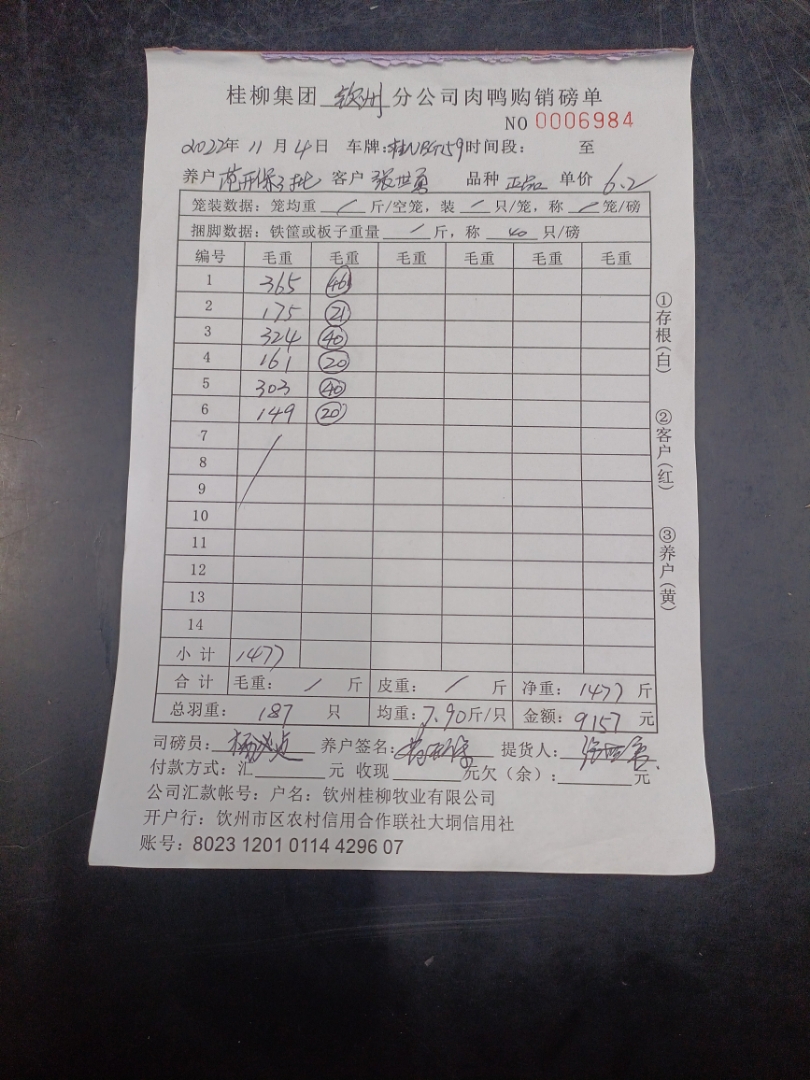 桂柳集团 钦州 分公司肉鸭购销磅单
NO 0006984
2022年 11 月 4 日 车牌: 时间段: 至
养户 客户 张世勇 品种 正品 单价 6.2
笼装数据: 笼均重 / 斤/空笼, 装 / 只/笼, 称 / 笼/磅
捆脚数据: 铁筐或板子重量 / 斤, 称 40 只/磅
编号 毛重 毛重 毛重 毛重 毛重 毛重
1 365 46
2 175 21
3 324 40
4 161 20
5 303 40
6 149 20
7
8
9
10
11
12
13
14
小计 1477
合计 毛重: / 斤 皮重: / 斤 净重: 1477 斤
总羽重: 187 只 均重: 7.90 斤/只 金额: 9157 元
司磅员: 养户签名: 提货人: 张世勇
付款方式: 汇 元 收现 元欠(余): 元
公司汇款帐号: 户名: 钦州桂柳牧业有限公司
开户行: 钦州市区农村信用合作联社大垌信用社
账号: 8023 1201 0114 4296 07
①存根(白)
②客户(红)
③养户(黄)